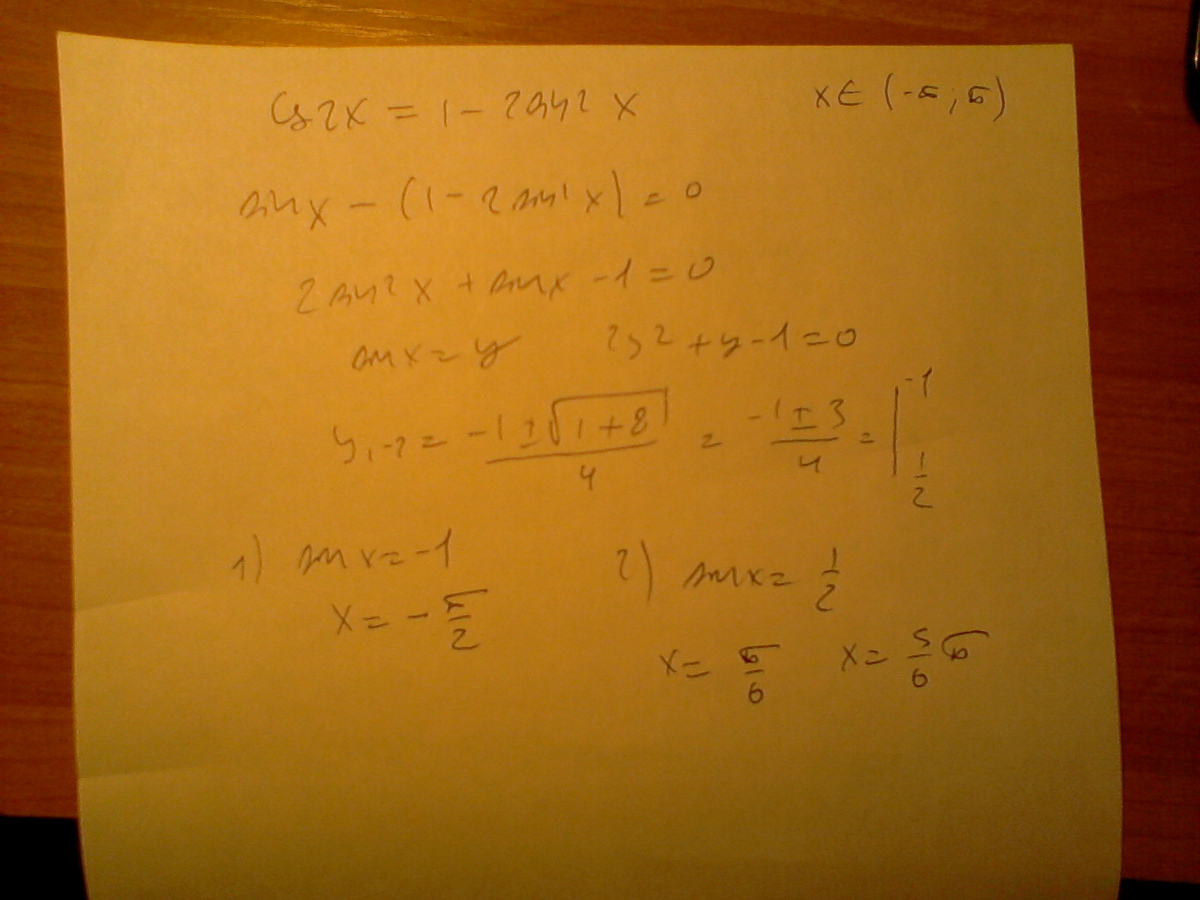 cos 2x = 1 - 2 sin² x x ∈ (-π; π)
sin x - (1 - 2 sin² x) = 0
2 sin² x + sin x - 1 = 0
sin x = y 2y² + y - 1 = 0
y₁₋₂ = (-1 ± √(1 + 8))/4 = (-1 ± 3)/4 = | -1 1/2
1) sin x = -1 2) sin x = 1/2
x = - π/2 x = π/6 x = 5/6 π